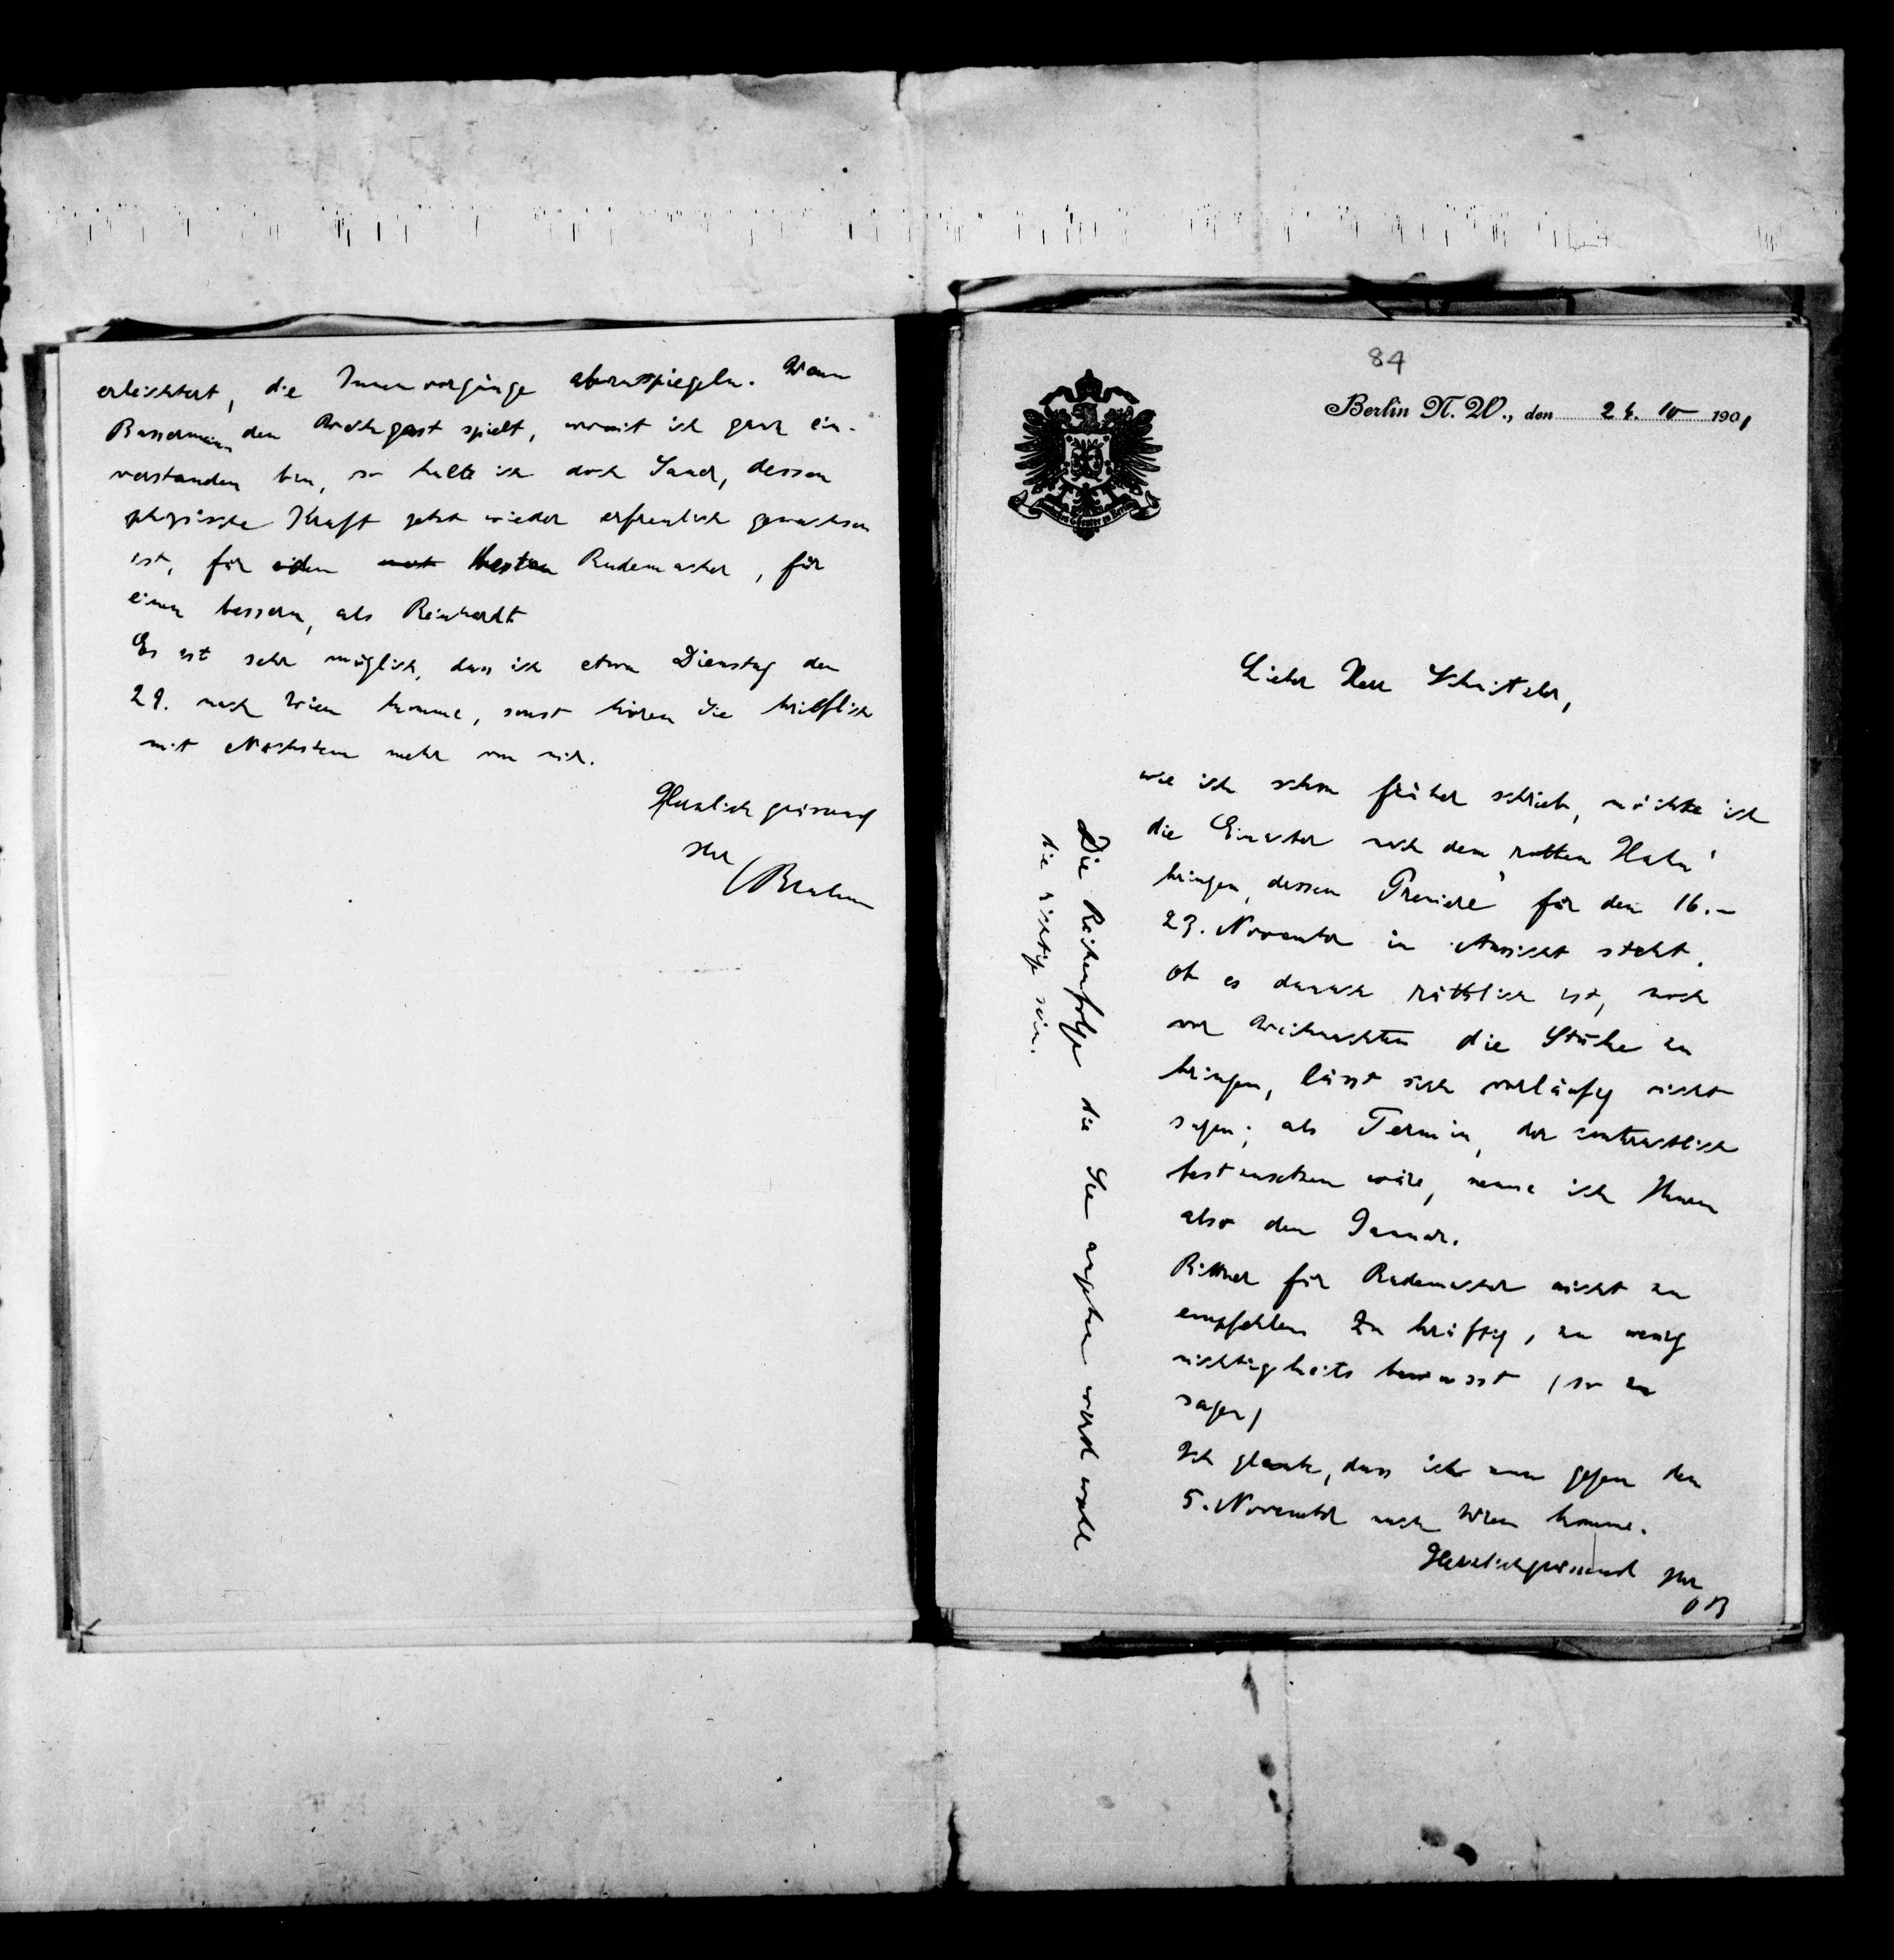 erleichtert, die Innenvorgänge abzuspiegeln. Wenn
Bassermann den Weihgast spielt, womit ich ganz ein-
verstanden bin, so halte ich doch Sauer, dessen
physische Kraft jetzt wieder erfreulich gewachsen
ist, für den besten Rademacher, für
einen bessern, als Reinhardt
Es ist sehr möglich, dass ich etwa Dienstag den
29. nach Wien komme, sonst hören Sie brieflich
mit Nächstem mehr von mir.
Herzlich grüssend
Ihr
Brahm
84
Berlin N. W., den 24. 10 1901
Deutsches Theater zu Berlin
Lieber Herr Schnitzler,
wie ich schon früher schrieb, möchte ich
die Einakter nach dem „rothen Hahn“
bringen, dessen Première für den 16.–
23. November in Aussicht steht.
Ob es danach räthlich ist, noch
vor Weihnachten die Stücke zu
bringen, lässt sich vorläufig nicht
sagen; als Termin, der contractlich
festzusetzen wäre, nenne ich Ihnen
also den Januar.
Rittner für Rademacher nicht zu
empfehlen. Zu kräftig, zu wenig
nichtigkeitsbewusst (so zu
sagen)
Ich glaube, dass ich nun gegen den
5. November nach Wien komme.
Herzlich grüssend Ihr
OB
Die Reihenfolge die Sie angeben wird wohl
die richtige sein.